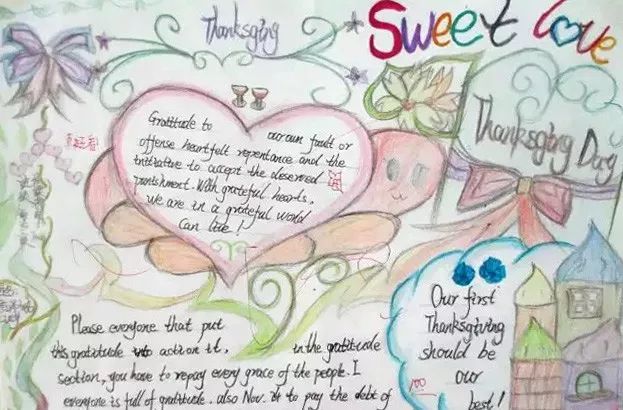 Thanksging
Sweet love
Gratitude to our own fault or
offense heartfelt repentance and the
initiative to accept the deserved
punishment. With grateful hearts,
we are in a grateful world
Can live!
Thanksging Day
Please everyone that put
this gratitude into action it, in the gratitude
section, you have to repay every grace of the people. I
everyone is full of gratitude. also Nov. to pay the debt of
Our first
Thanksgiving
should be
our
best!